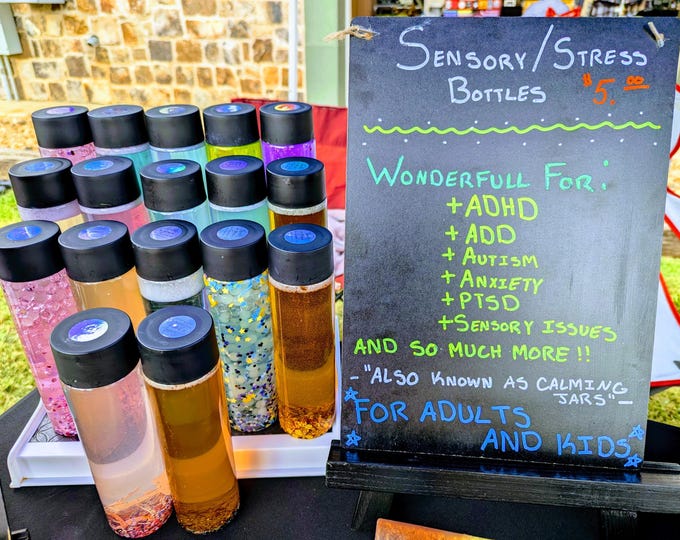 SENSORY/STRESS
BOTTLES $5.00
WONDERFULL FOR:
+ADHD
+ADD
+AUTISM
+ANXIETY
+PTSD
+SENSORY ISSUES
AND SO MUCH MORE!!
-"ALSO KNOWN AS CALMING
JARS"-
FOR ADULTS
AND KIDS